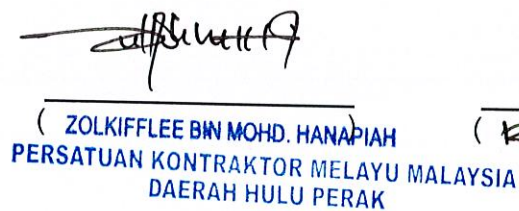 ( ZOLKIFFLEE BIN MOHD. HANAPIAH ) (
PERSATUAN KONTRAKTOR MELAYU MALAYSIA
DAERAH HULU PERAK